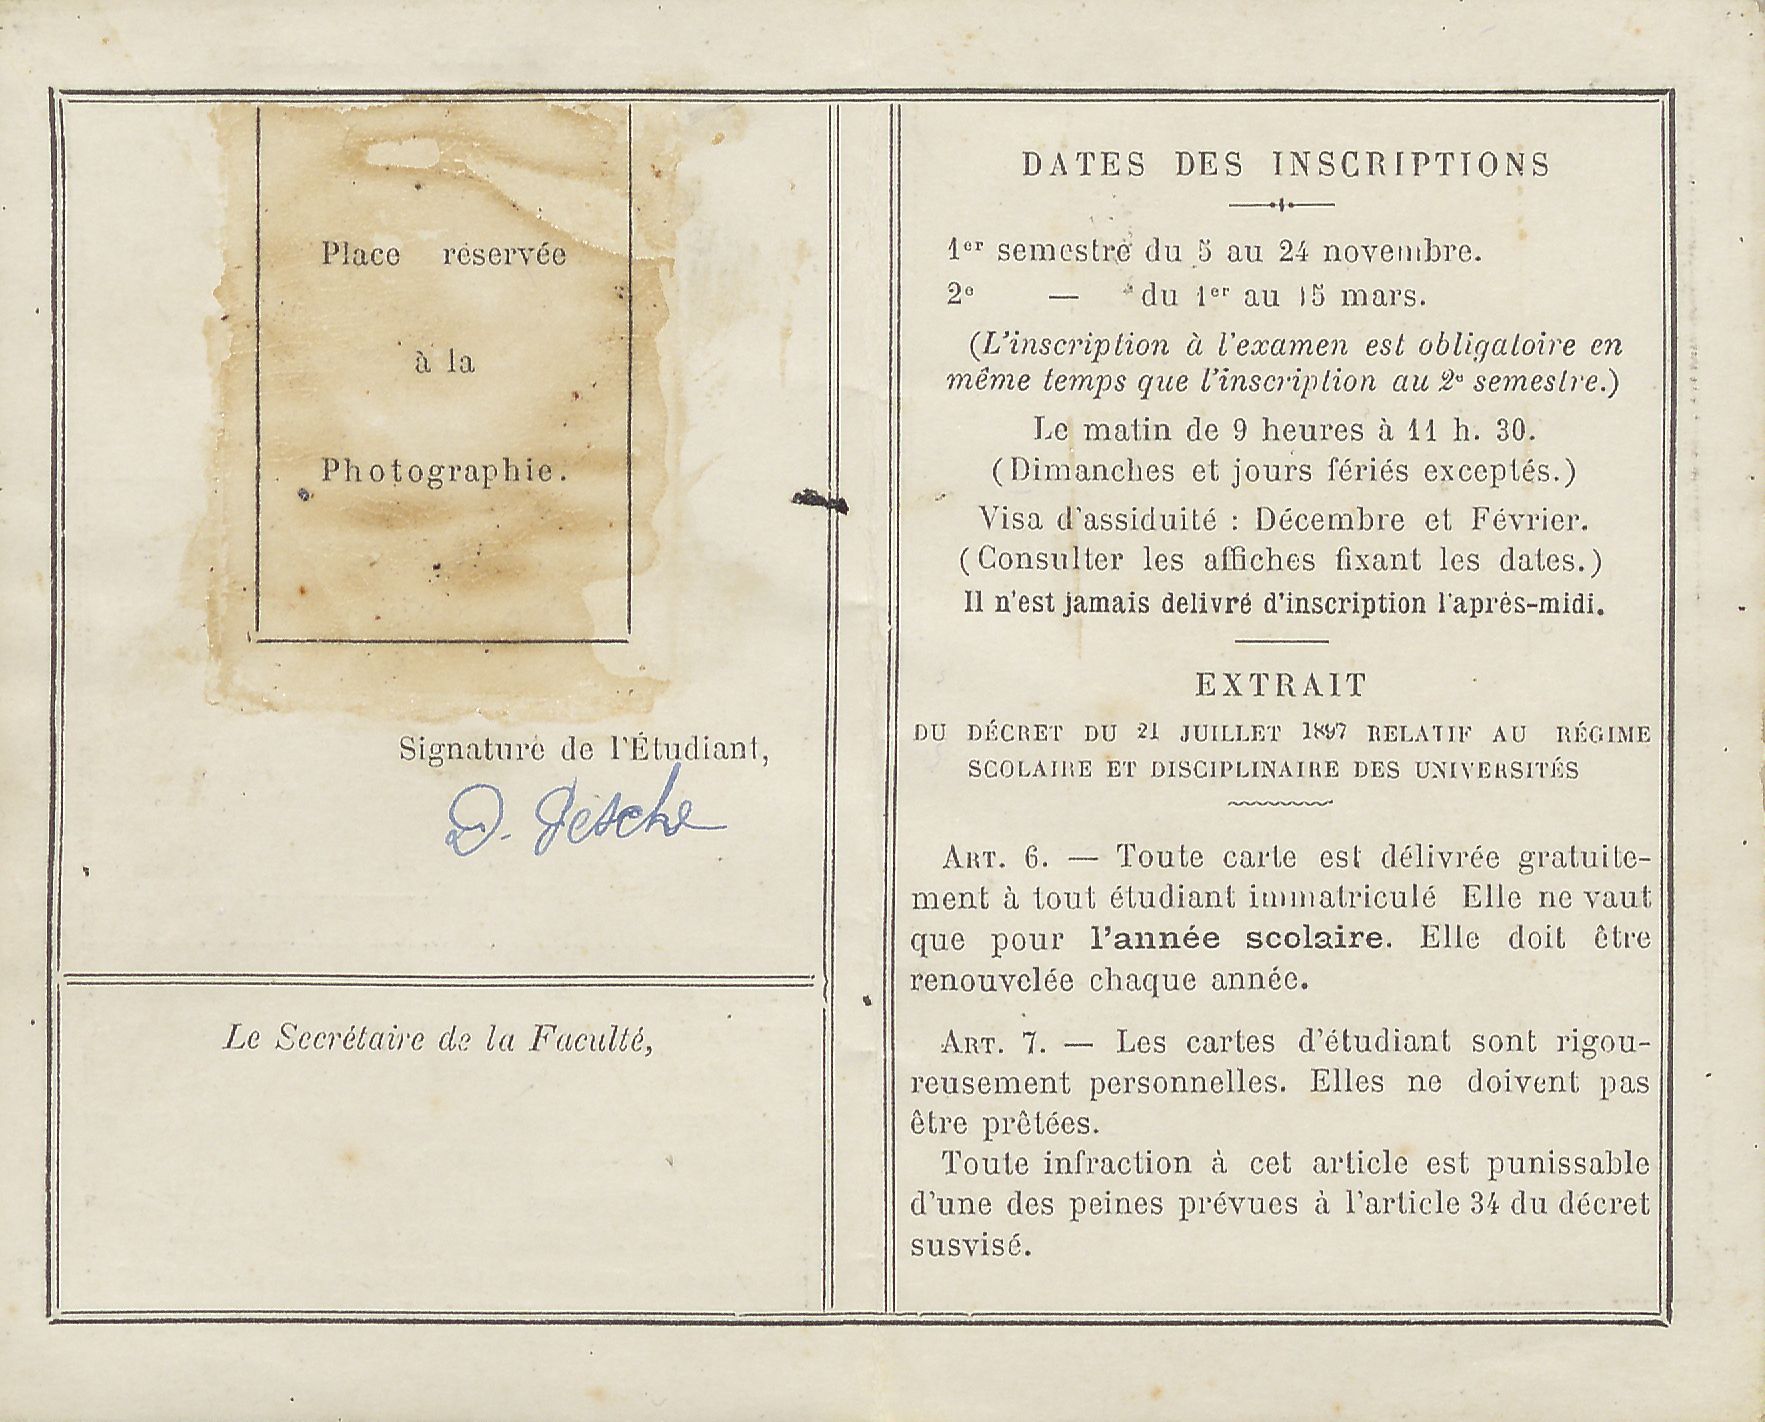 Place réservée
à la
Photographie.
Signature de l'Étudiant,
D. Pesche
Le Secrétaire de la Faculté,
DATES DES INSCRIPTIONS
1er semestre du 5 au 24 novembre.
2e — du 1er au 15 mars.
(L'inscription à l'examen est obligatoire en
même temps que l'inscription au 2e semestre.)
Le matin de 9 heures à 11 h. 30.
(Dimanches et jours fériés exceptés.)
Visa d'assiduité : Décembre et Février.
(Consulter les affiches fixant les dates.)
Il n'est jamais delivré d'inscription l'après-midi.
EXTRAIT
DU DÉCRET DU 21 JUILLET 1897 RELATIF AU RÉGIME
SCOLAIRE ET DISCIPLINAIRE DES UNIVERSITÉS
ART. 6. — Toute carte est délivrée gratuite-
ment à tout étudiant immatriculé Elle ne vaut
que pour l'année scolaire. Elle doit être
renouvelée chaque année.
ART. 7. — Les cartes d'étudiant sont rigou-
reusement personnelles. Elles ne doivent pas
être prêtées.
Toute infraction à cet article est punissable
d'une des peines prévues à l'article 34 du décret
susvisé.